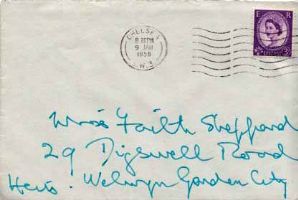 CHELSEA
9 JAN
1958
E R
Miss Faith Sheppard
29 Digswell Road
Herts. Welwyn Garden City